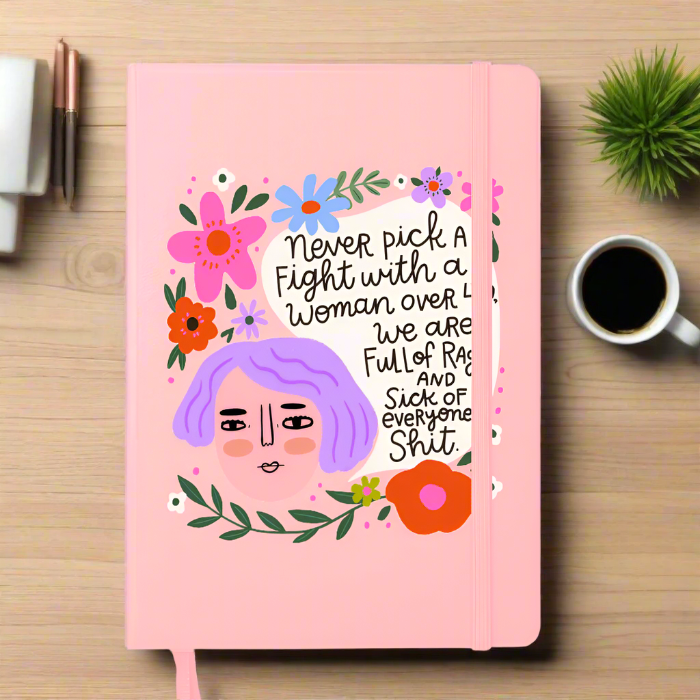 never pick A
Fight with a
woman over
we are
Full of
AND
Sick of
everyone
Shit.